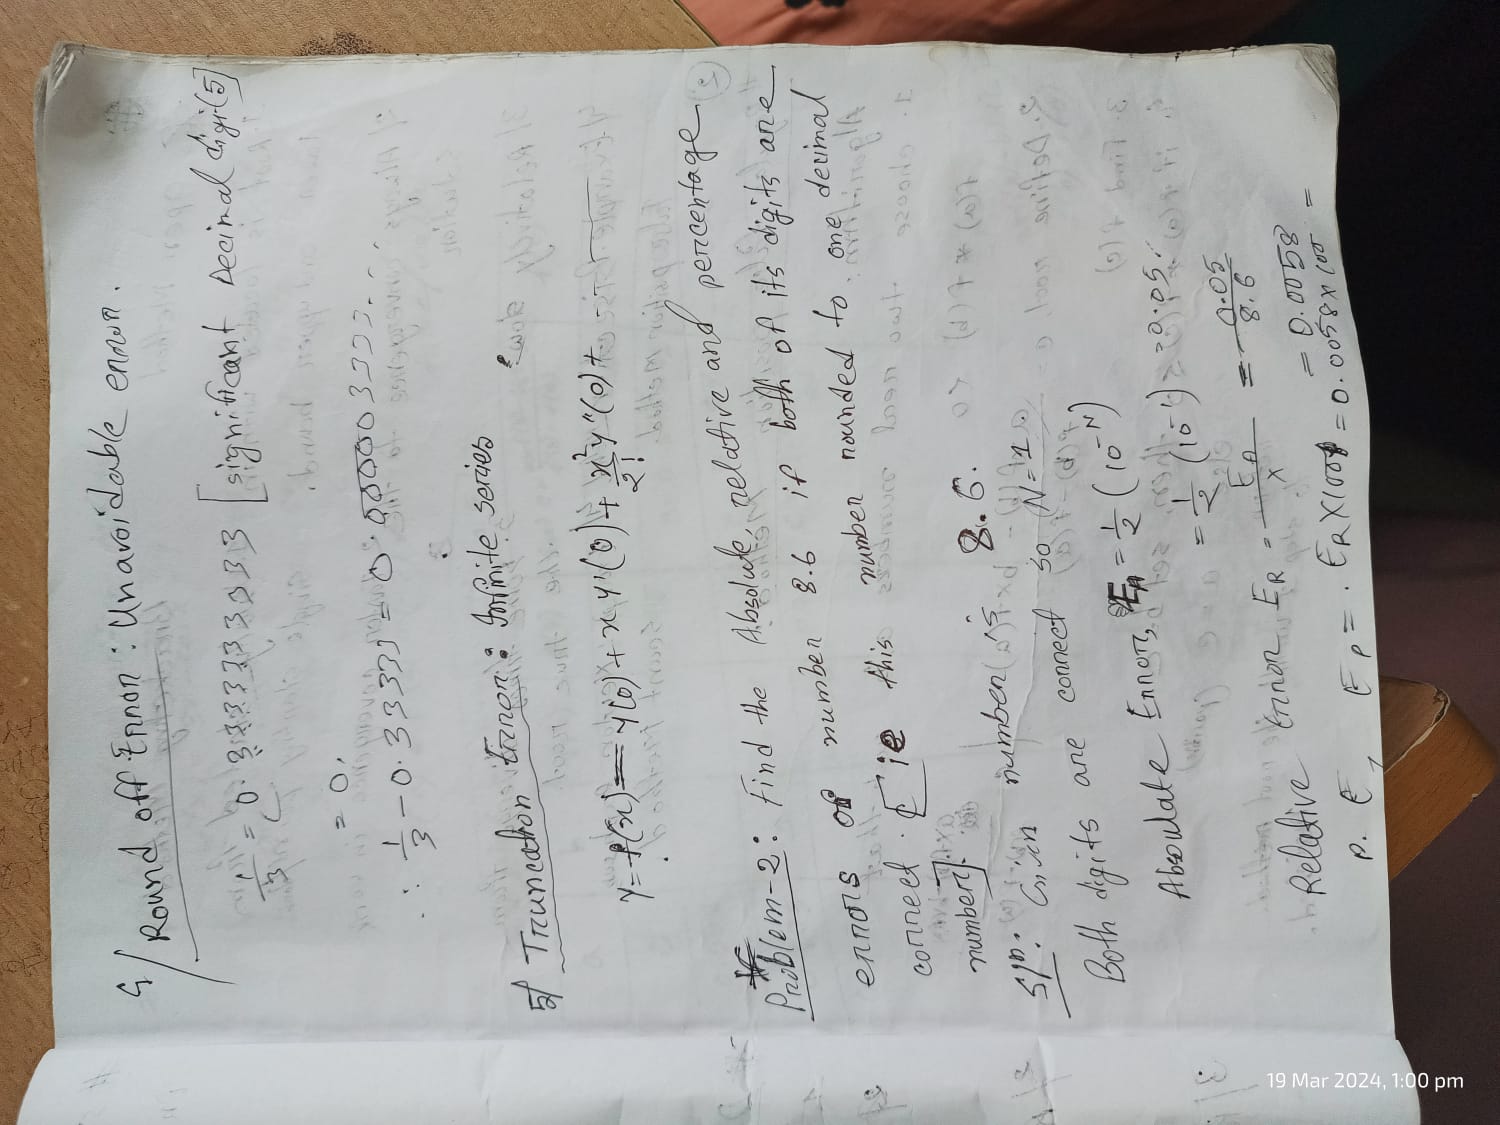 4/ Round off Error: Unavoidable error.
1/3 = 0.3333333333 [significant Decimal digi(5]
= 0.
∴ 1/3 - 0.33333 = 0.00000333...
5/ Truncation Error: Infinite series
y = f(x) = y(0) + xy'(0) + x²/2! y''(0) +
Problem-2: Find the Absolute, relative and percentage
errors of number 8.6 if both of its digits are
correct. [ie this number rounded to one decimal
number].
Soln: Given number is 8.6.
Both digits are correct so N=1
Absoulate Error, EA = 1/2 (10^-N)
= 1/2 (10^-1) = 0.05.
Relative Error ER = EA/x = 0.05/8.6
= 0.0058
P. E, EP = ER X100 = 0.0058 x 100 =
19 Mar 2024, 1:00 pm